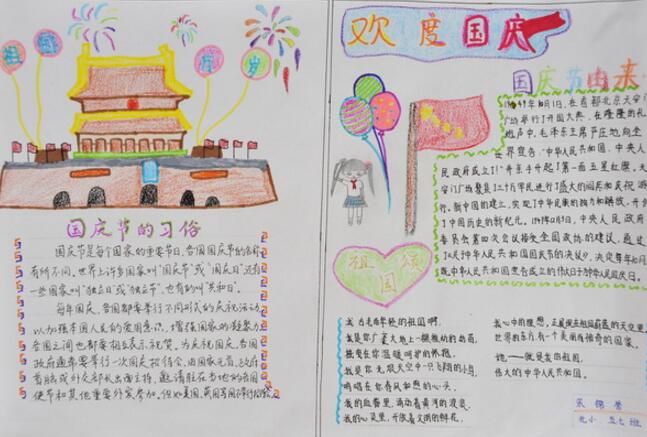 祖国万岁
国庆节的习俗
国庆节是每个国家的重要节日,各国国庆节的名称
有所不同。世界上许多国家叫“国庆节”或“国庆日”,还有
一些国家叫“独立日”或“独立节”,也有的叫“共和日”。
每年国庆,各国都要举行不同形式的庆祝活动
以加强本国人民的爱国意识,增强国家的凝聚力
各国之间也都要相互表示祝贺。为庆祝国庆,各国
政府通常要举行一次国庆招待会,由国家元首、政府
首脑或外交部长出面主持,邀请驻在当地的各国
使节和其他重要外宾参加。但
欢度国庆
国庆节由来
1949年10月1日,在首都北京天安门
广场举行了开国大典,在隆隆的礼
炮声中,毛泽东主席庄严地向全
世界宣告,“中华人民共和国、中央人
民政府成立了!”并亲手升起了第一面五星红旗。天
安门广场聚集三十万军民进行了盛大的阅兵和庆祝游
行。新中国的建立,实现了中华民族的独立和解放,开创
了中国历史的新纪元。 中央人民政府
委员会第四次会议接受全国政协的建议,通过
了《关于中华人民共和国国民节的决议》,决定每年10月
既中华人民共和国宣告成立的伟大日子为中华人民共和国国庆日。
祖国颂
我古老而年轻的祖国啊,
我是你广袤大地上一棵稚幼的幼苗,
我是你无限天空中一只飞翔的小鸟,
吟唱在你春风 的心头。
我的血脊里,涌动着黄河的波浪,
我的心灵里,开放着文明的鲜花。
我心中的理想,正展现在祖国蔚蓝的天空里,
世界的东方有一个美丽而神奇的国家。
她——就是我的祖国,
伟大的中华人民共和国。
五七班